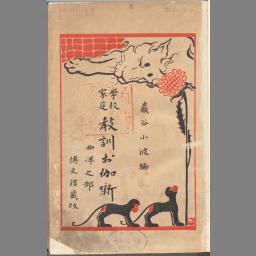 巌谷小波編
学校
家庭
教訓お伽噺
西洋之部
博文館蔵版